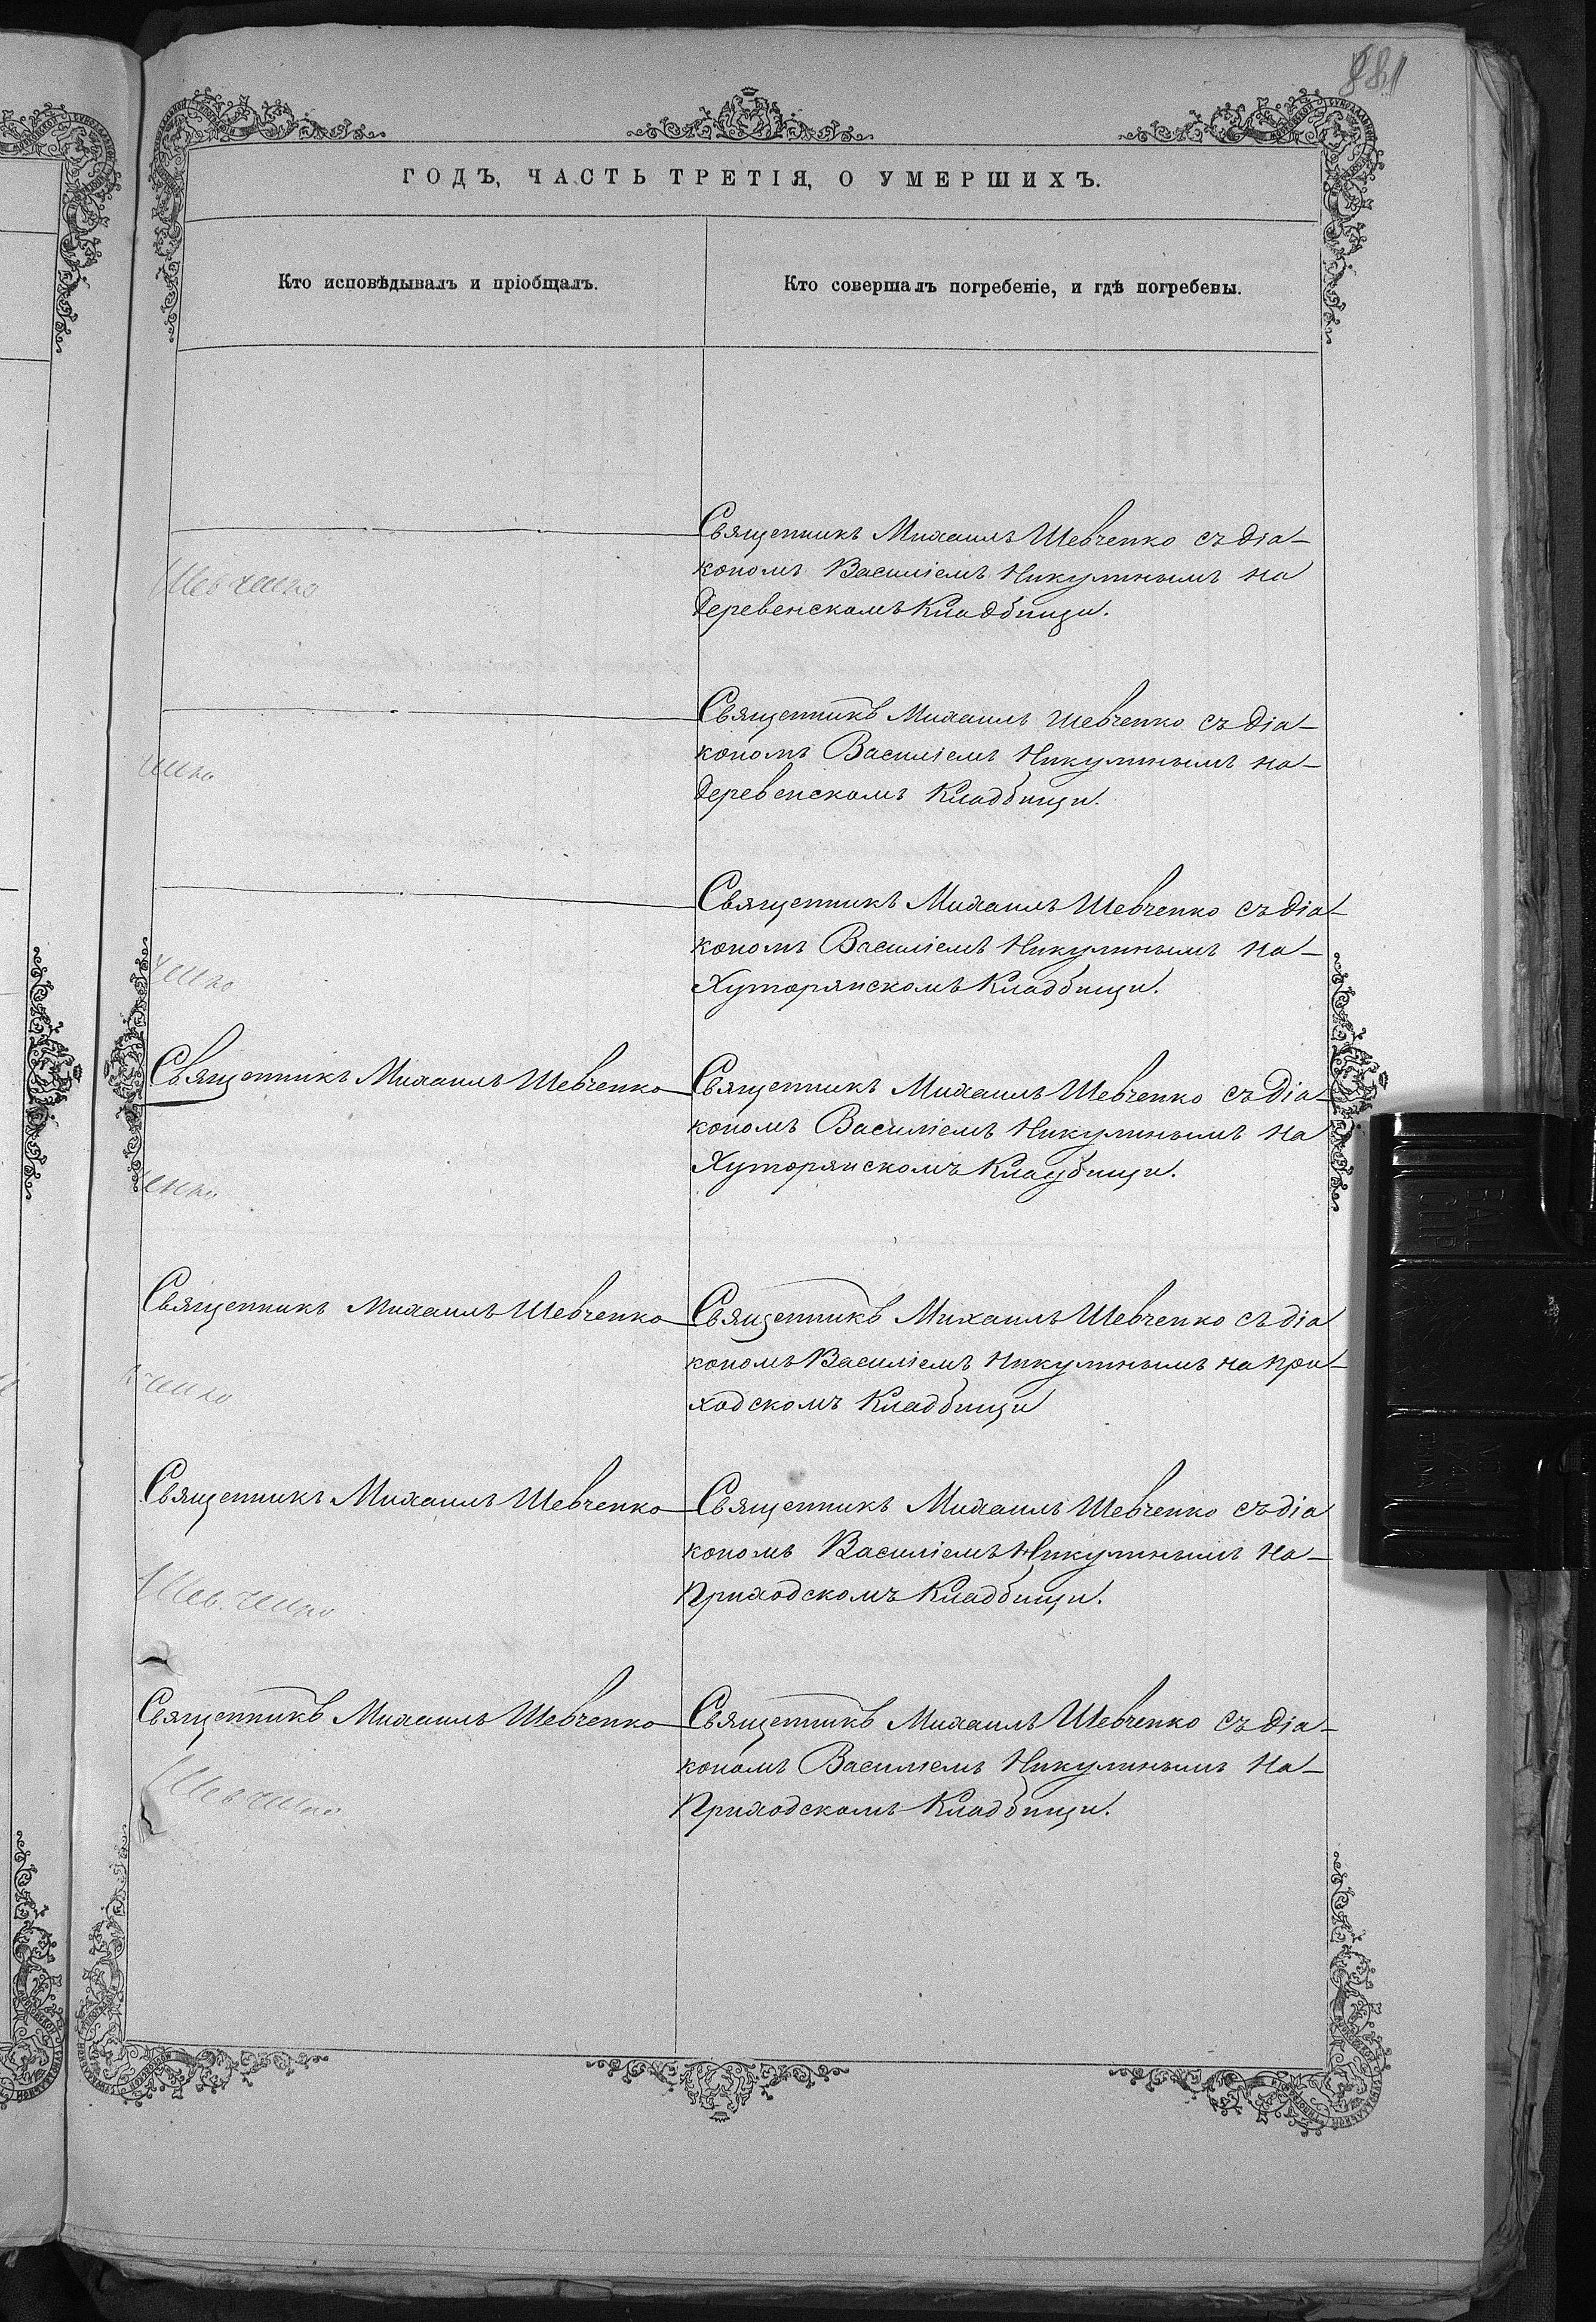 881
ГОДЪ, ЧАСТЬ ТРЕТІЯ, О УМЕРШИХЪ.
Кто исповѣдывалъ и пріобщалъ.
Кто совершалъ погребеніе, и гдѣ погребены.
Священникъ Михаилъ Шевченко съ діа-
кономъ Василіемъ Никулинымъ на
Деревенскомъ Кладбищи.
Шевченко
Священникъ Михаилъ Шевченко съ діа-
кономъ Василіемъ Никулинымъ на-
Деревенскомъ Кладбищи.
Священникъ Михаилъ Шевченко съ діа-
кономъ Василіемъ Никулинымъ на-
Хуторянскомъ Кладбищи.
Священникъ Михаилъ Шевченко
Священникъ Михаилъ Шевченко съ Діа-
кономъ Василіемъ Никулинымъ на
Хуторянскомъ Кладбищи.
Священникъ Михаилъ Шевченко
Священникъ Михаилъ Шевченко съ діа
кономъ Василіемъ Никулинымъ на при-
ходскомъ Кладбищи
Священникъ Михаилъ Шевченко
Священникъ Михаилъ Шевченко съ діа
кономъ Василіемъ Никулинымъ на-
Приходскомъ Кладбищи.
Шевченко
Священникъ Михаилъ Шевченко
Священникъ Михаилъ Шевченко съ діа-
кономъ Василіемъ Никулинымъ на-
Приходскомъ Кладбищи.
Шевченко